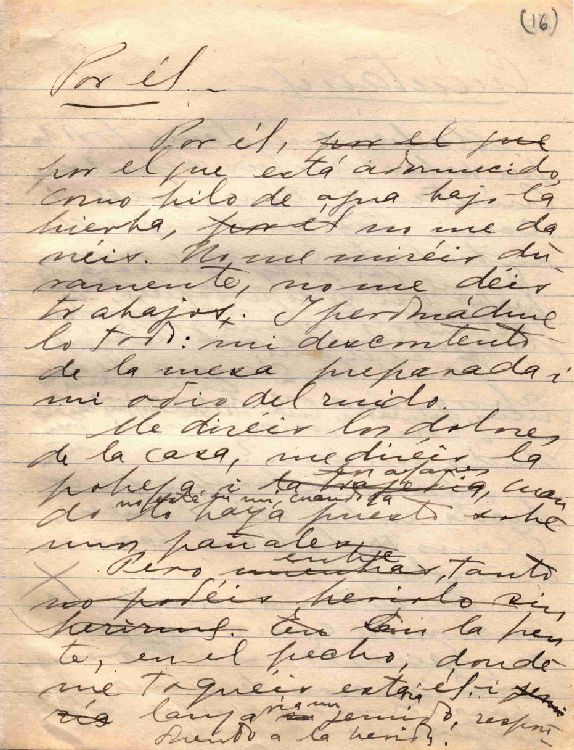 (16)
Por él.-
Por él, por el que
por el que está adormecido,
como hilo de agua bajo la
hierba, por él no me da
néis. No me miréis du
ramente, no me déis
trabajos. I perdonádme
lo todo: mi descontento
de la mesa preparada i
mi odio del ruido.
Me diréis los dolores
de la casa, me diréis la
los afanes
pobreza i la tragedia, cuan
no esté en mi, cuando la
do lo haya puesto sobre
unos pañales.
entre
Pero mientras, tanto
no podéis herirlo sin
herirme. En la fren
te, en el pecho, donde
me toquéis estaría él i
lanzaría un gemido, respon
diendo a la herida.